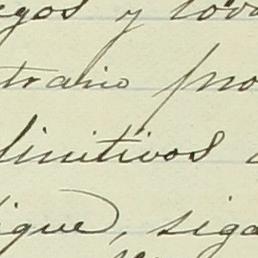 egos y tod
trario pro
finitivos
ique, siga